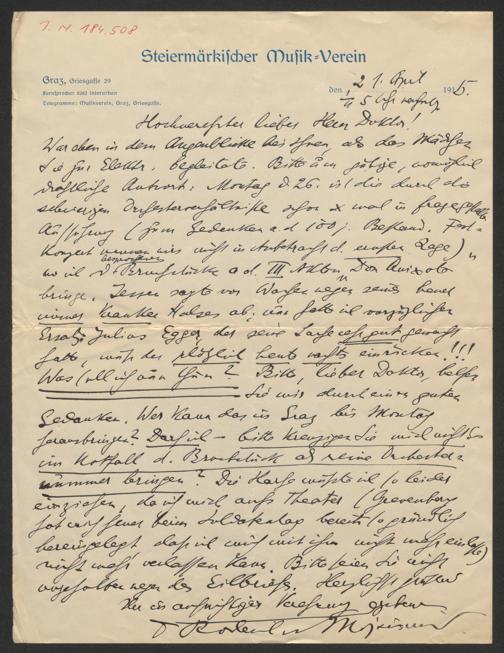 I. N. 184.508
Steiermärkischer Musik-Verein
Graz, Griesgasse 29
Fernsprecher 8262 interurban
Telegramme: Musikverein, Graz, Griesgasse.
den 21. April 1915.
5 Uhr
Hochverehrter lieber Herr Doktor!
War eben in dem Augenblicke bei Ihnen, als das Mädchen
Sie zur Elektr. begleitete. Bitte um gütige, womöglich
Antwort: Montag d. 26. ist die durch die
schwierigen Orchesterverhältnisse schon x mal in Frage gestellte
Aufführung (zum Gedenken a. d. 100 j. Bestand. Fest-
Konzert wir nicht in Anbetracht d. ernsten Lage)
wo ich d. Bruchstücke a. d. III Akte Don Quixote
bringe. Jessen sagte vor Wochen wegen seines
kranken Halses ab, nun hatte ich vorzüglichen
Ersatz Julius Egger, der seine Sache sehr gut gemacht
hatte, plötzlich heut nachts einrücken!!!
Was soll ich nun thun? Bitte, lieber Doktor, helfen
Sie mir durch einen guten
Gedanken. Wer kann das in Graz bis Montag
herausbringen? Darf ich – bitte kreuzigen Sie mich nicht
im Notfall d. Bruchstück als reine Orchester-
nummer bringen? Die Harfe müßte ich so leider
einziehen, da ich mich aufs Theater (Grevenberg
hat mich heuer beim Soldatentag bereits so gründlich
hereingelegt, daß ich mich mit ihm nicht mehr einlasse)
nicht mehr verlassen kann. Bitte seien Sie nicht
wegen des Eilbriefes. Herzlichst grüßend
Ihr in aufrichtiger Verehrung ergebener